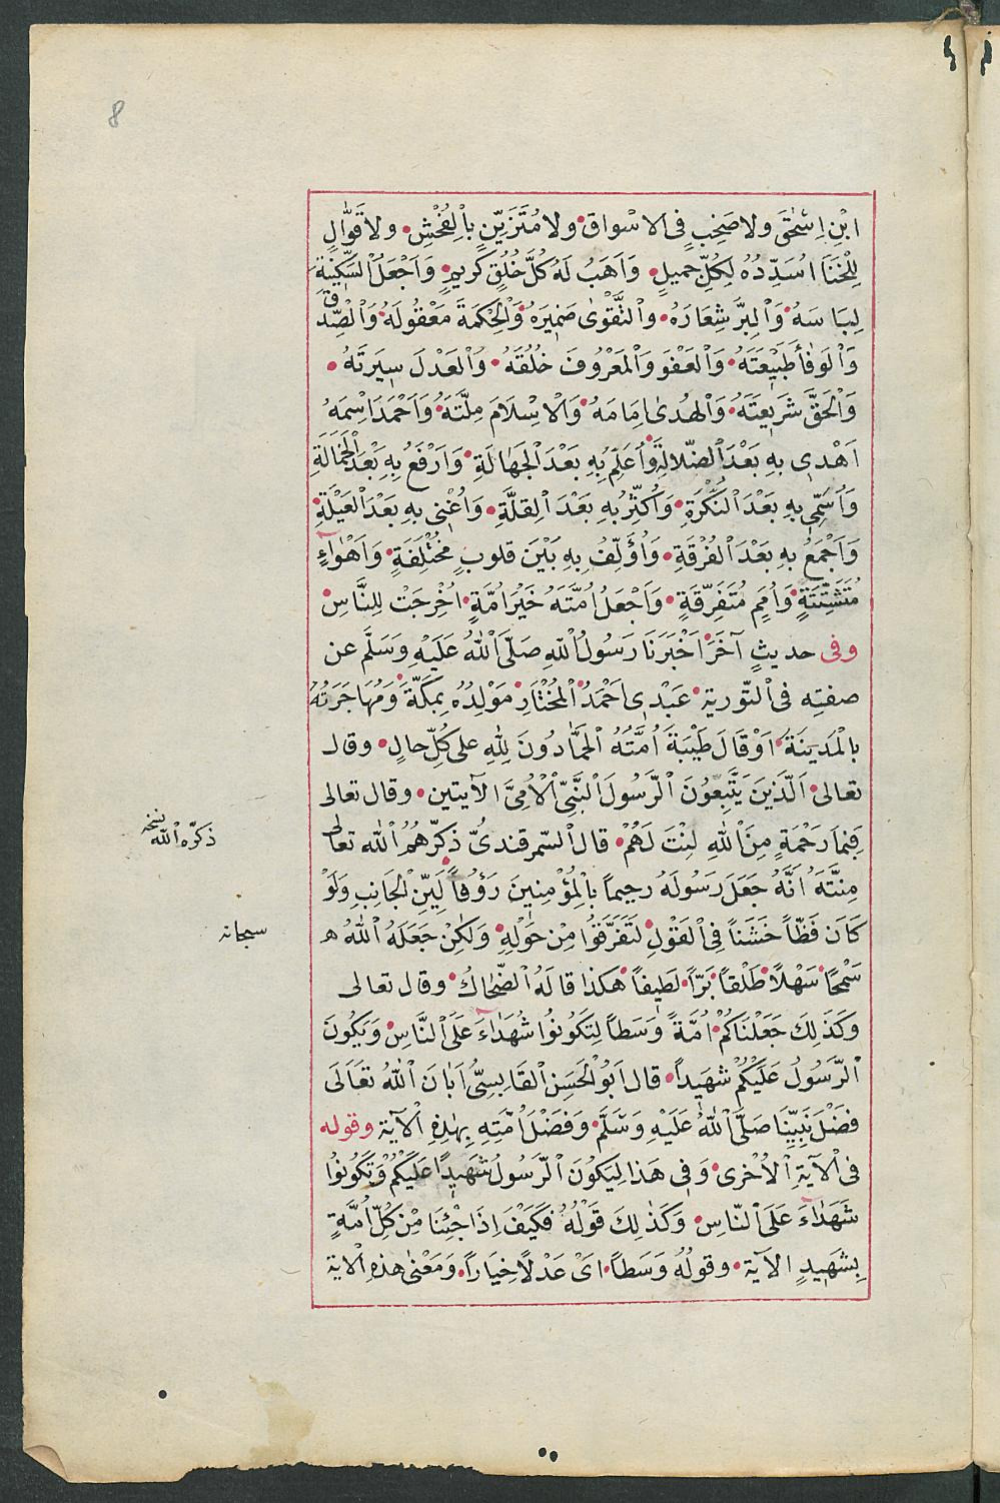 8
ابْنِ اِسْحٰقَ ولا صَخِبٍ فى الاسْواق ولا مُتَزَيِّنٍ بِاْلفُحْشِ ولا قَوَّالٍ
لِلْخَنَا اُسَدِّدُهُ لِكُلِّ جَميلٍ وَاَهَبُ لَهُ كُلَّ خُلُقٍ كَريمٍ وَاَجْعَلُ السَّكِينَةَ
لِبَاسَهُ وَالْبِرَّ شِعَارَهُ والتَّقْوٰى ضَمِيرَهُ وَالْحِكْمَةَ مَعْقُولَهُ وَالْصِّدْقَ
وَالْوَفَأَ طَبِيْعَتَهُ وَالْعَفْوَ وَالْمَعْرُوفَ خُلُقَهُ وَالْعَدْلَ سِيَرتَهُ
وَالْحَقَّ شَرِيعَتَهُ وَالْهُدىٰ اِمَامَهُ وَالْاِسْلَامَ مِلَّتَهُ وَاَحْمَدَ اسْمَهُ
اَهْدى بِهِ بَعْدَ الضَّلالَةِ وَاُعَلِّمُ بِهِ بَعْدَ الْجَهَالَةِ وَاَرْفَعُ بِهِ بَعْدَ الْخَمَالَةِ
وَاُسَمِّى بِهِ بَعْدَ النُّكْرَةِ وَاُكَثِّرُ بِهِ بَعْدَ الْقِلَّةِ وَاُغْنِى بِهِ بَعْدَ الْعَيْلَةِ
وَاَجْمَعُ بِهِ بَعْدَ الْفُرْقَةِ وَاُؤَلِّفُ بِهِ بَيْنَ قلوبٍ مُخْتَلِفَةٍ وَاَهْوَاءٍ
مُتَشَتِّتَةٍ وَاُمَمٍ مُتَفَرِّقَةٍ وَاَجْعَلُ اُمَّتَهُ خَيْرَ اُمَّةٍ اُخْرِجَتْ لِلنَّاسِ
وفى حديثٍ آخَرَ اَخْبَرَنَا رَسُولُ اللهِ صَلَّى اللهُ عَلَيْهِ وَسَلَّم عن
صفتِه فى التّورية عَبْدِى اَحْمَدُ الْمُخْتَارِ مَوْلِدُهُ بِمَكَّةَ وَمُهَاجَرَتُهُ
بالْمَدينَةَ اَوْ قَالَ طَيْبَةَ اُمَّتُهُ الْحَمَّادُونَ لِلهِ على كُلِّ حالٍ وقال
تعالى اَلَّذِينَ يَتَّبِعُونَ الرَّسُولَ النَّبِىَّ الْاُمِّىَّ الآيتين وقال تعالى
فَبِمَا رَحْمَةٍ مِنَ اللهِ لِنْتَ لَهُمْ قال السّمرقندىُّ ذكَّرهُمُ الله تعالى
مِنَّتَهُ اَنَّهُ جَعَلَ رَسُولَهُ رحيماً بالْمُؤْمِنينَ رَؤُفاً لَيِّنَ الْجَانِبِ وَلَوْ
كَانَ فَظّاً خَشَناً فِى الْقَوْلِ لَتَفَرَّقُوا مِنْ حَوْلِهِ وَلٰكِنْ جَعَلَهُ اللهُ ه
سَمْحًا سَهْلاً طَلْقاً بَرّاً لطيفاً هَكذا قالَهُ الضَّحّاكُ وقال تعالى
وَكَذٰلِكَ جَعَلْنَاكُمْ اُمَّةً وَسَطاً لِتَكُونُوا شُهَدَاءَ عَلَى النَّاسِ وَيَكُونَ
الرَّسُولُ عَلَيْكُمْ شَهيداً قال اَبُو الْحَسَنِ القَابِسِىُّ اَبَانَ اللهُ تعَالَى
فَضْلَ نَبِيِّنَا صَلَّى اللهُ عَلَيْهِ وَسَلَّم وَفَضْلَ اُمَّتِهِ بِهٰذِهِ الْآية وقوله
فى الْآيَةِ الْاُخْرى وَفِى هَذا لِيَكُونَ الرَّسُولُ شَهِيدًا عَلَيْكُمْ وَتَكُونُوا
شُهَدَاءَ عَلَى النّاسِ وَكَذٰلِكَ قَوْلُهُ فَكَيْفَ اِذَا جْئِنَا مِنْ كُلِّ اُمَّةٍ
بِشَهِيدٍ الآيَةَ وقولُهُ وَسَطاً اَىْ عَدْلًا خِيَاراً وَمَعْنٰى هذِهِ الْآية
ذكّره الله نسخه
سبحانه